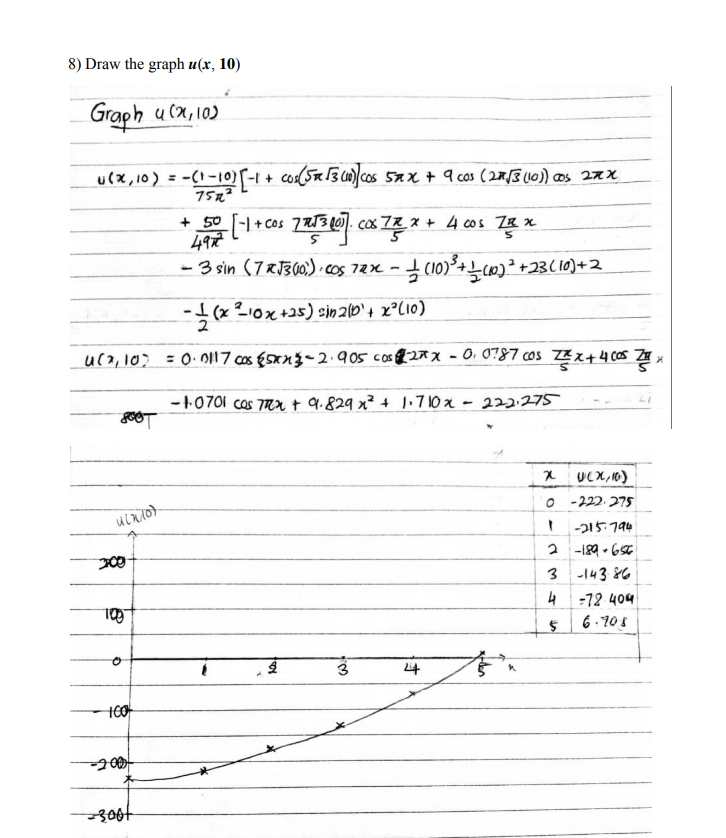 8) Draw the graph u(x, 10)
Graph u(x,10)
u(x,10) = -(1-10)/75π² [-1 + cos(5π√3(10)]cos 5πx + 9 cos (2π√3(10)) cos 2πx
+ 50/49π² [-1 + cos 7π√3(10)/5]. cos 7π/5 x + 4 cos 7π/5 x
- 3 sin (7π√3(10)).cos 7πx - 1/2 (10)³ + 1/2 (10)² + 23(10) + 2
- 1/2 (x² - 10x + 25) sin 2(10) + x²(10)
u(x,10) = 0.0117 cos (5πx) - 2.905 cos 2πx - 0.0787 cos 7π/5 x + 4 cos 7π/5 x
- 1.0701 cos 7πx + 9.829x² + 1.710x - 222.275
x u(x,10)
0 -222.275
1 -215.794
2 -189.656
3 -143.86
4 -78 404
5 6.708
u(x,10)
200
100
0 1 2 3 4 5 x
-100
-200
-300